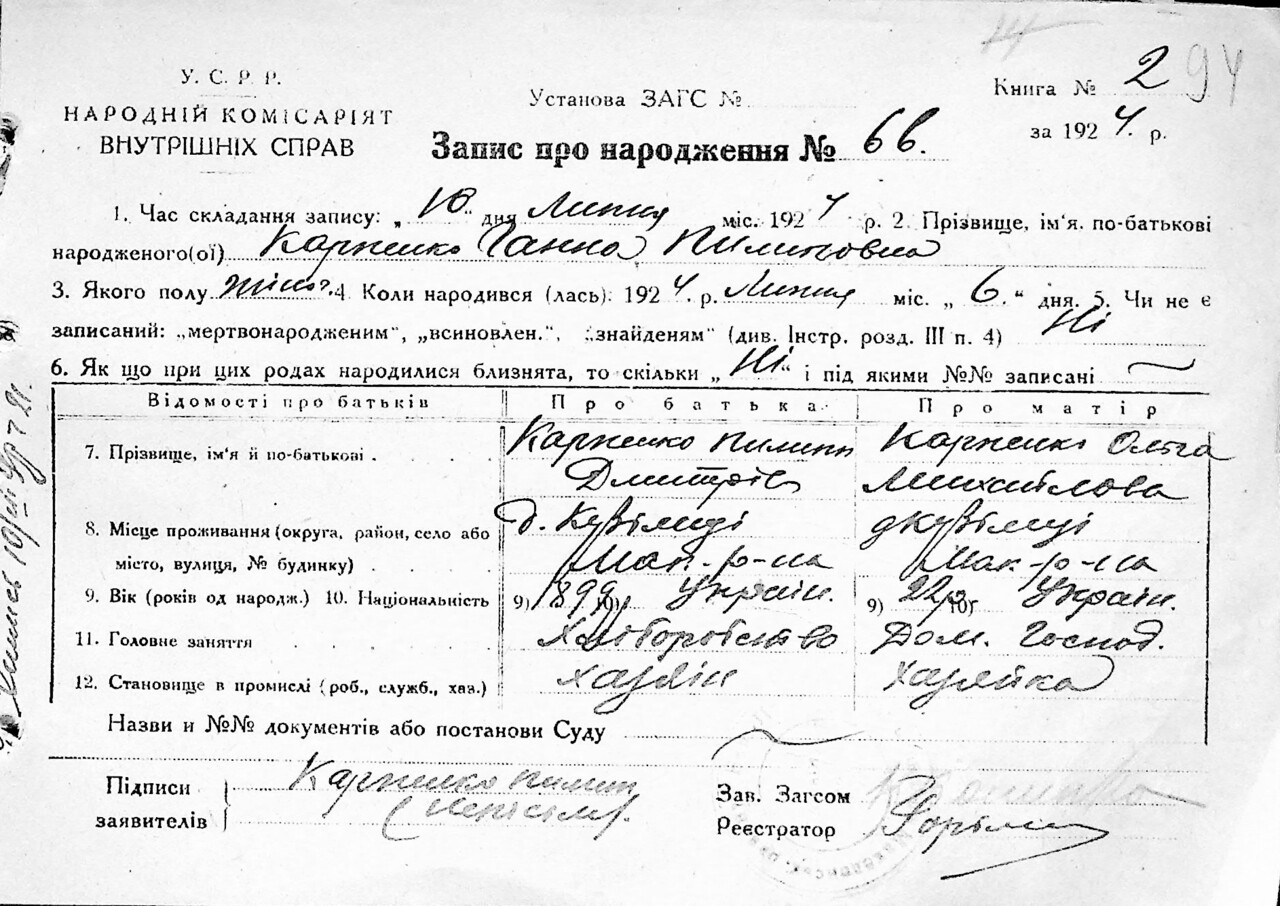 294
У. С. Р. Р.
НАРОДНІЙ КОМІСАРІЯТ
ВНУТРІШНІХ СПРАВ
Установа ЗАГС №
Книга № 2
за 1924 р.
Запис про народження № 66.
1. Час складання запису: „10" дня Липня міс. 1924 р. 2. Прізвище, ім'я, по-батькові
народженого(ої) Карпенко Ганна Пилиповна
3. Якого полу жіноч. 4 Коли народився (лась): 1924 р. Липня міс. „6." дня. 5. Чи не є
записаний: „мертвонародженим", „всиновлен.", „знайденям" (див. Інстр. розд. III п. 4) Ні
6. Як що при цих родах народилися близнята, то скільки „Ні" і під якими №№ записані
Відомості про батьків Про батька Про матір
7. Прізвище, ім'я й по-батькові . Карпенко Пилип Карпенко Ольга
Дмитрів Михайлова
8. Місце проживання (округа, район, село або д.
місто, вулиця, № будинку) . . Мак. р-на Мак-р-на
9. Вік (років од народж.) 10. Національність 9) 10) Україн. 9) 22р 10) Україн.
11. Головне заняття . . . . . Хліборобство Дом. Господ.
12. Становище в промислі (роб., служб., хаз.) хазяїн хазяйка
Назви и №№ документів або постанови Суду
Підписи
заявителів
Карпенко Пилип
Зав. Загсом
Реєстратор